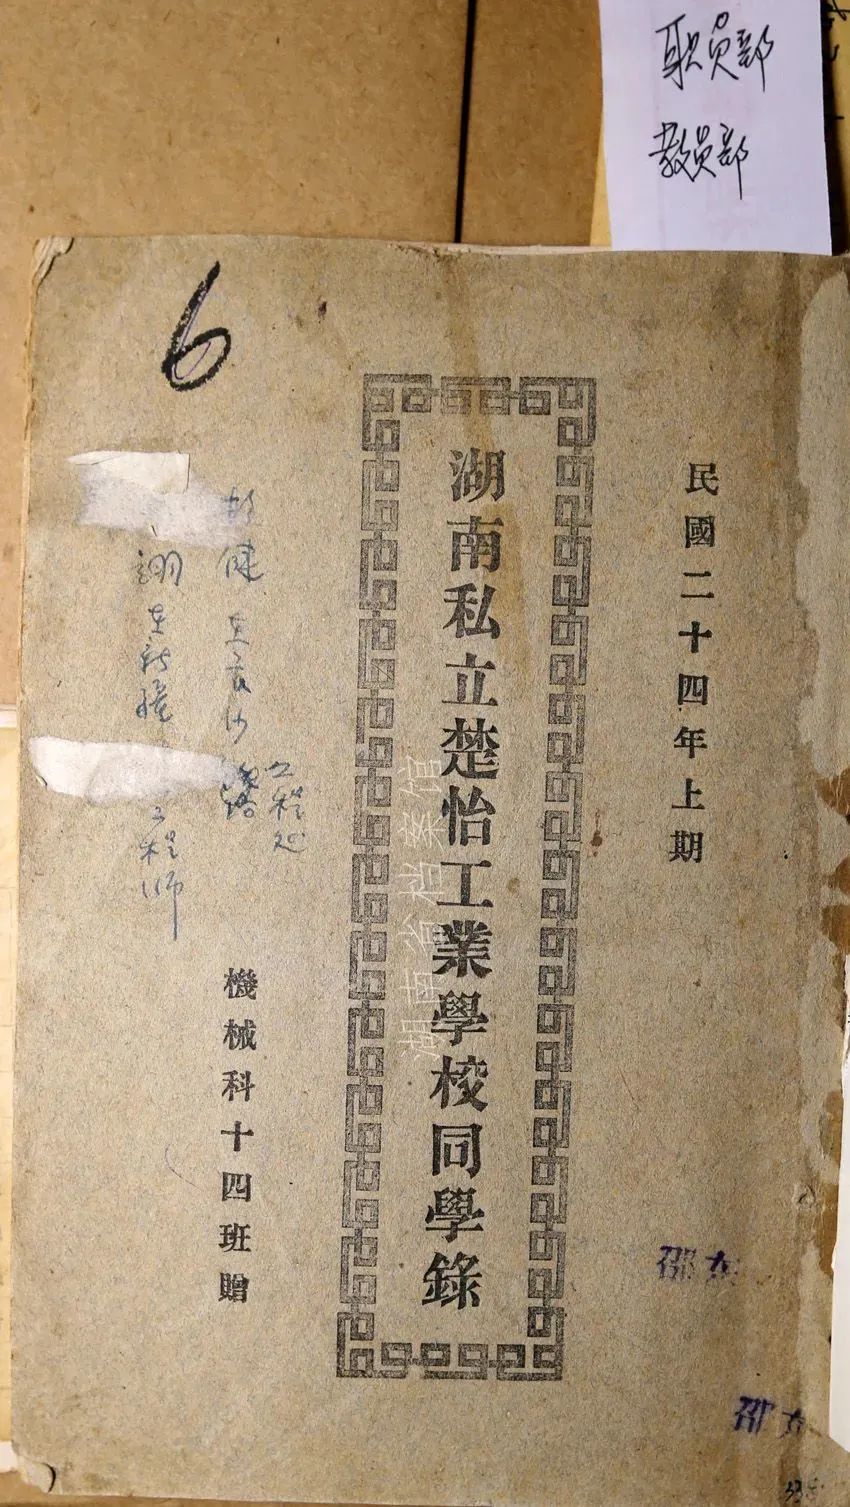 职员部
教员部
6
民國二十四年上期
湖南私立楚怡工業學校同學錄
機械科十四班贈
健 在長沙
工程处
翊 在新
工程师
湖南省档案馆
邵
邵